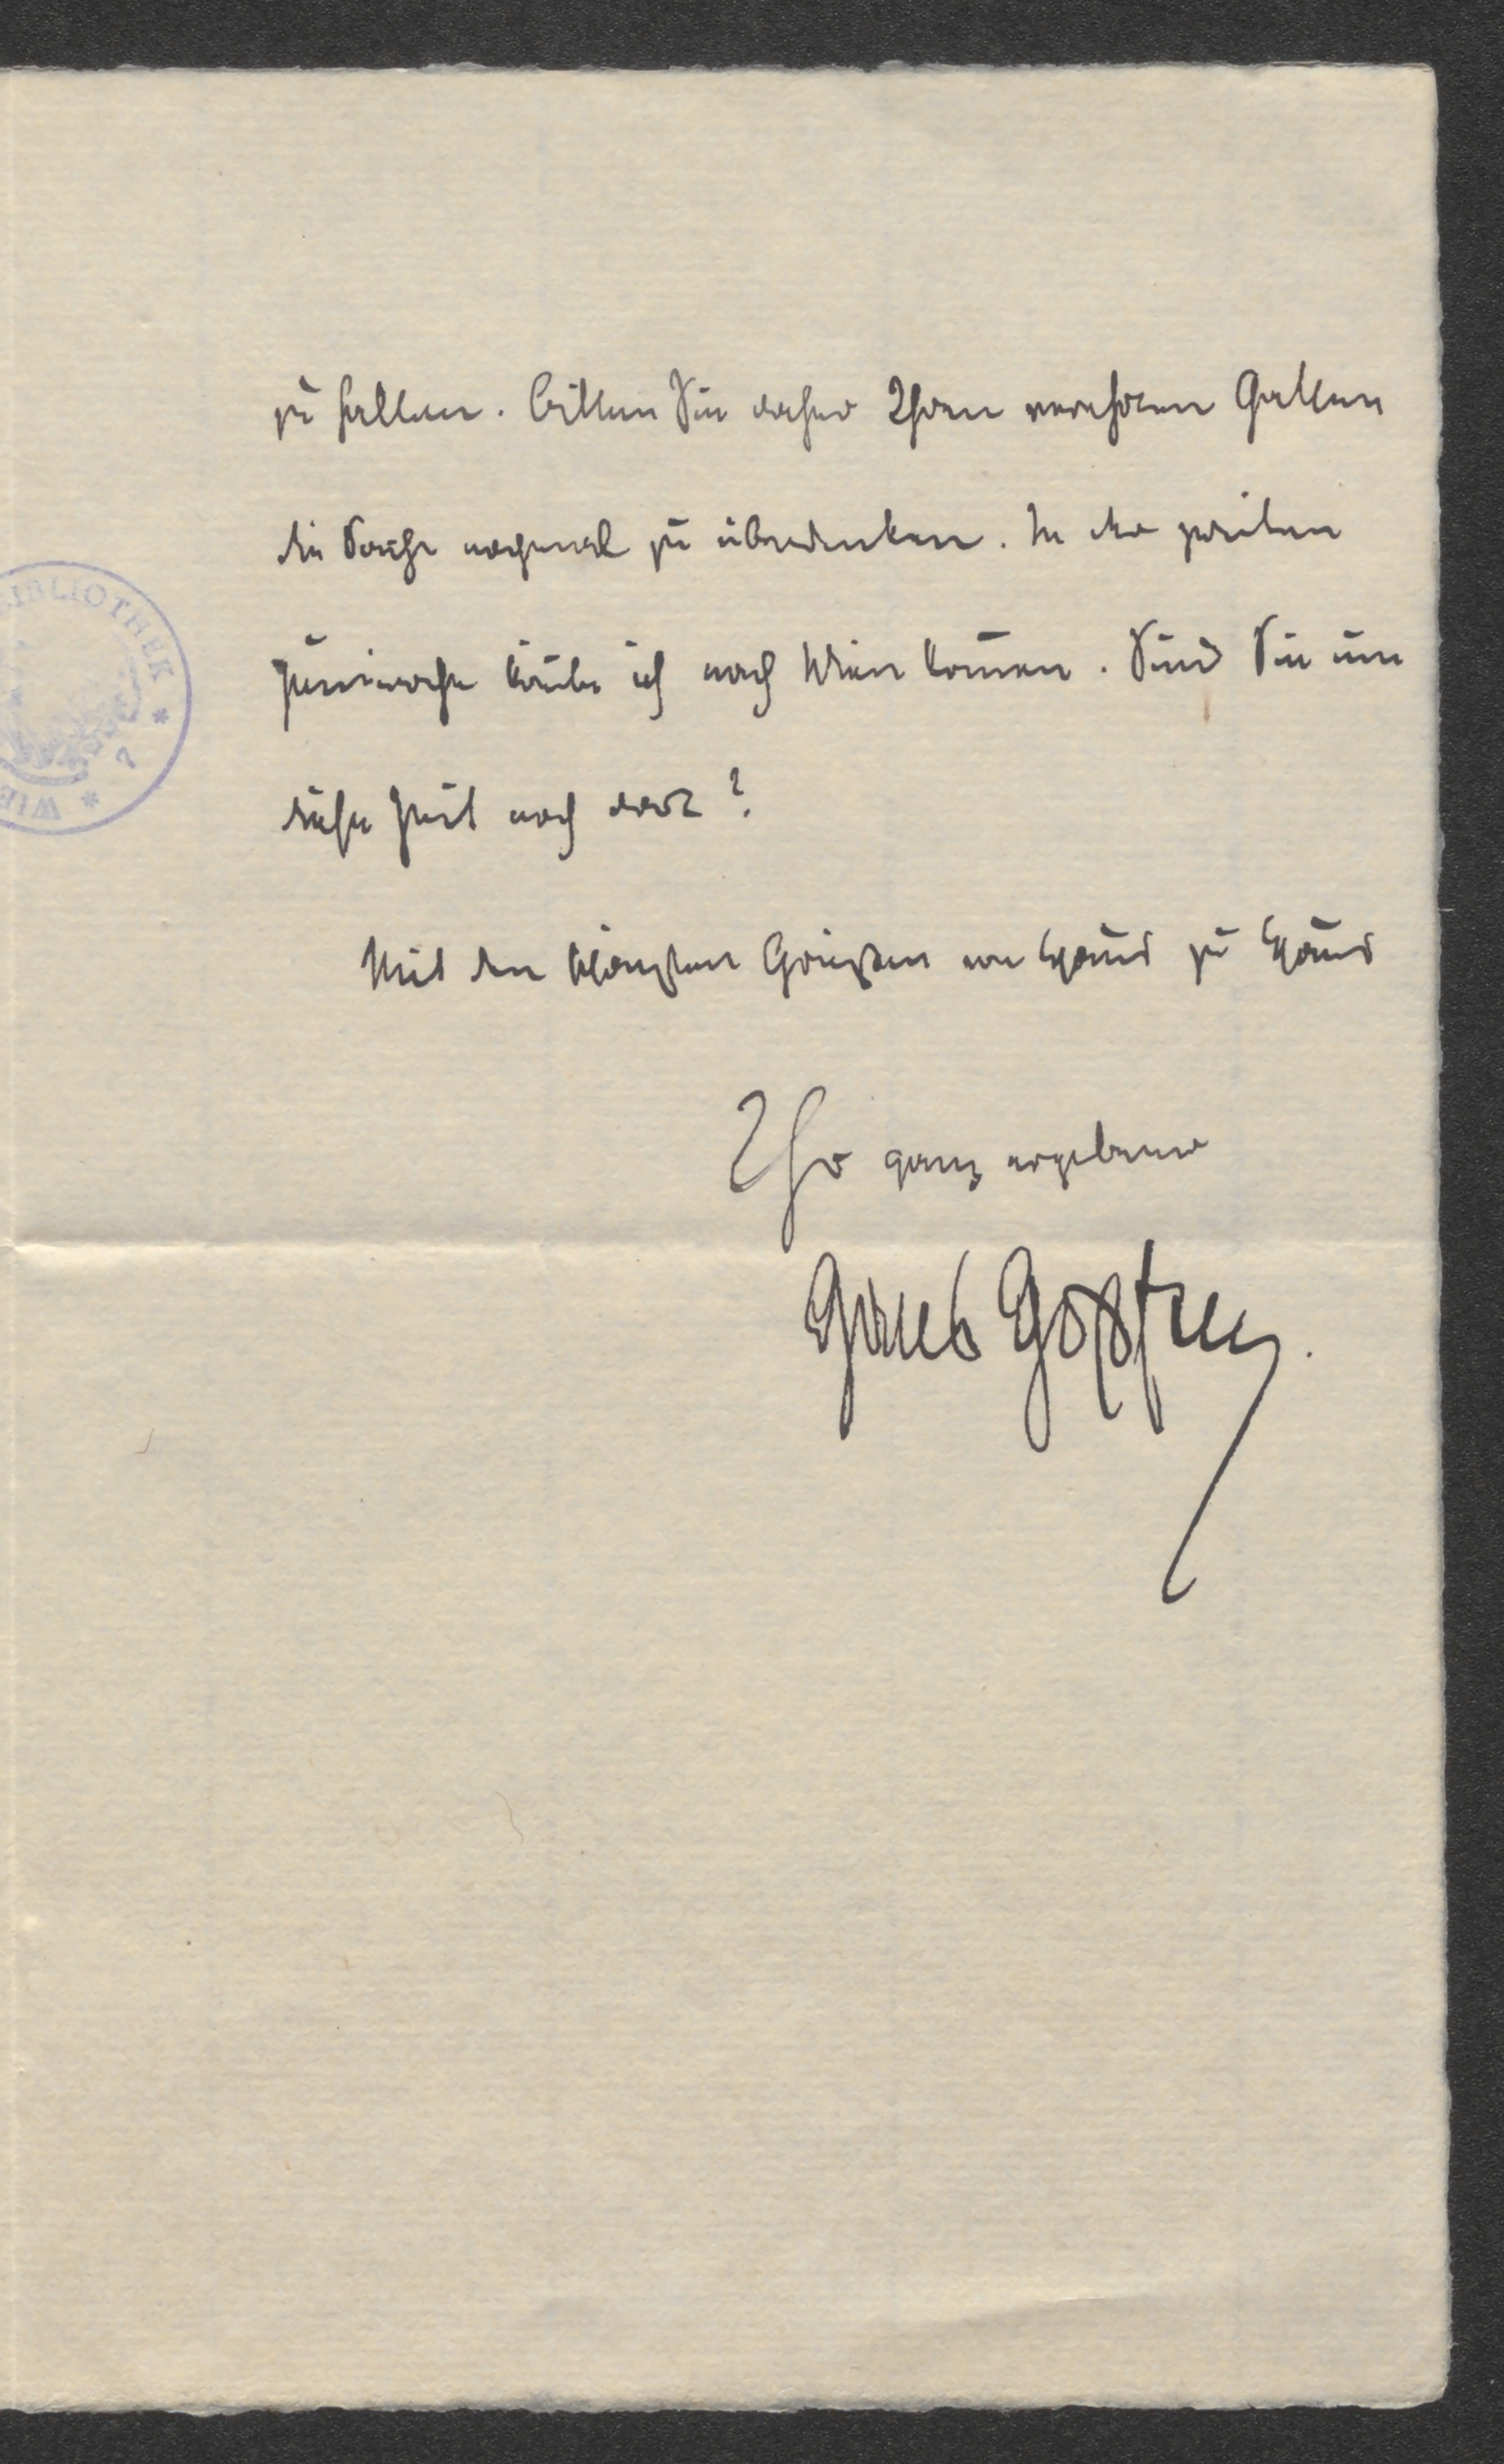 zu Bitten Sie daher Ihren verehrten Gatten
die Sache nochmal zu überdenken. In der zweiten
Juniwoche könnte ich nach Wien kom̄en. Sind Sie um
diese Zeit noch dort?
Mit den schönsten Grüßen von Haus zu Haus
Ihr ganz ergebener
BIBLIOTHEK * 7 * WIE